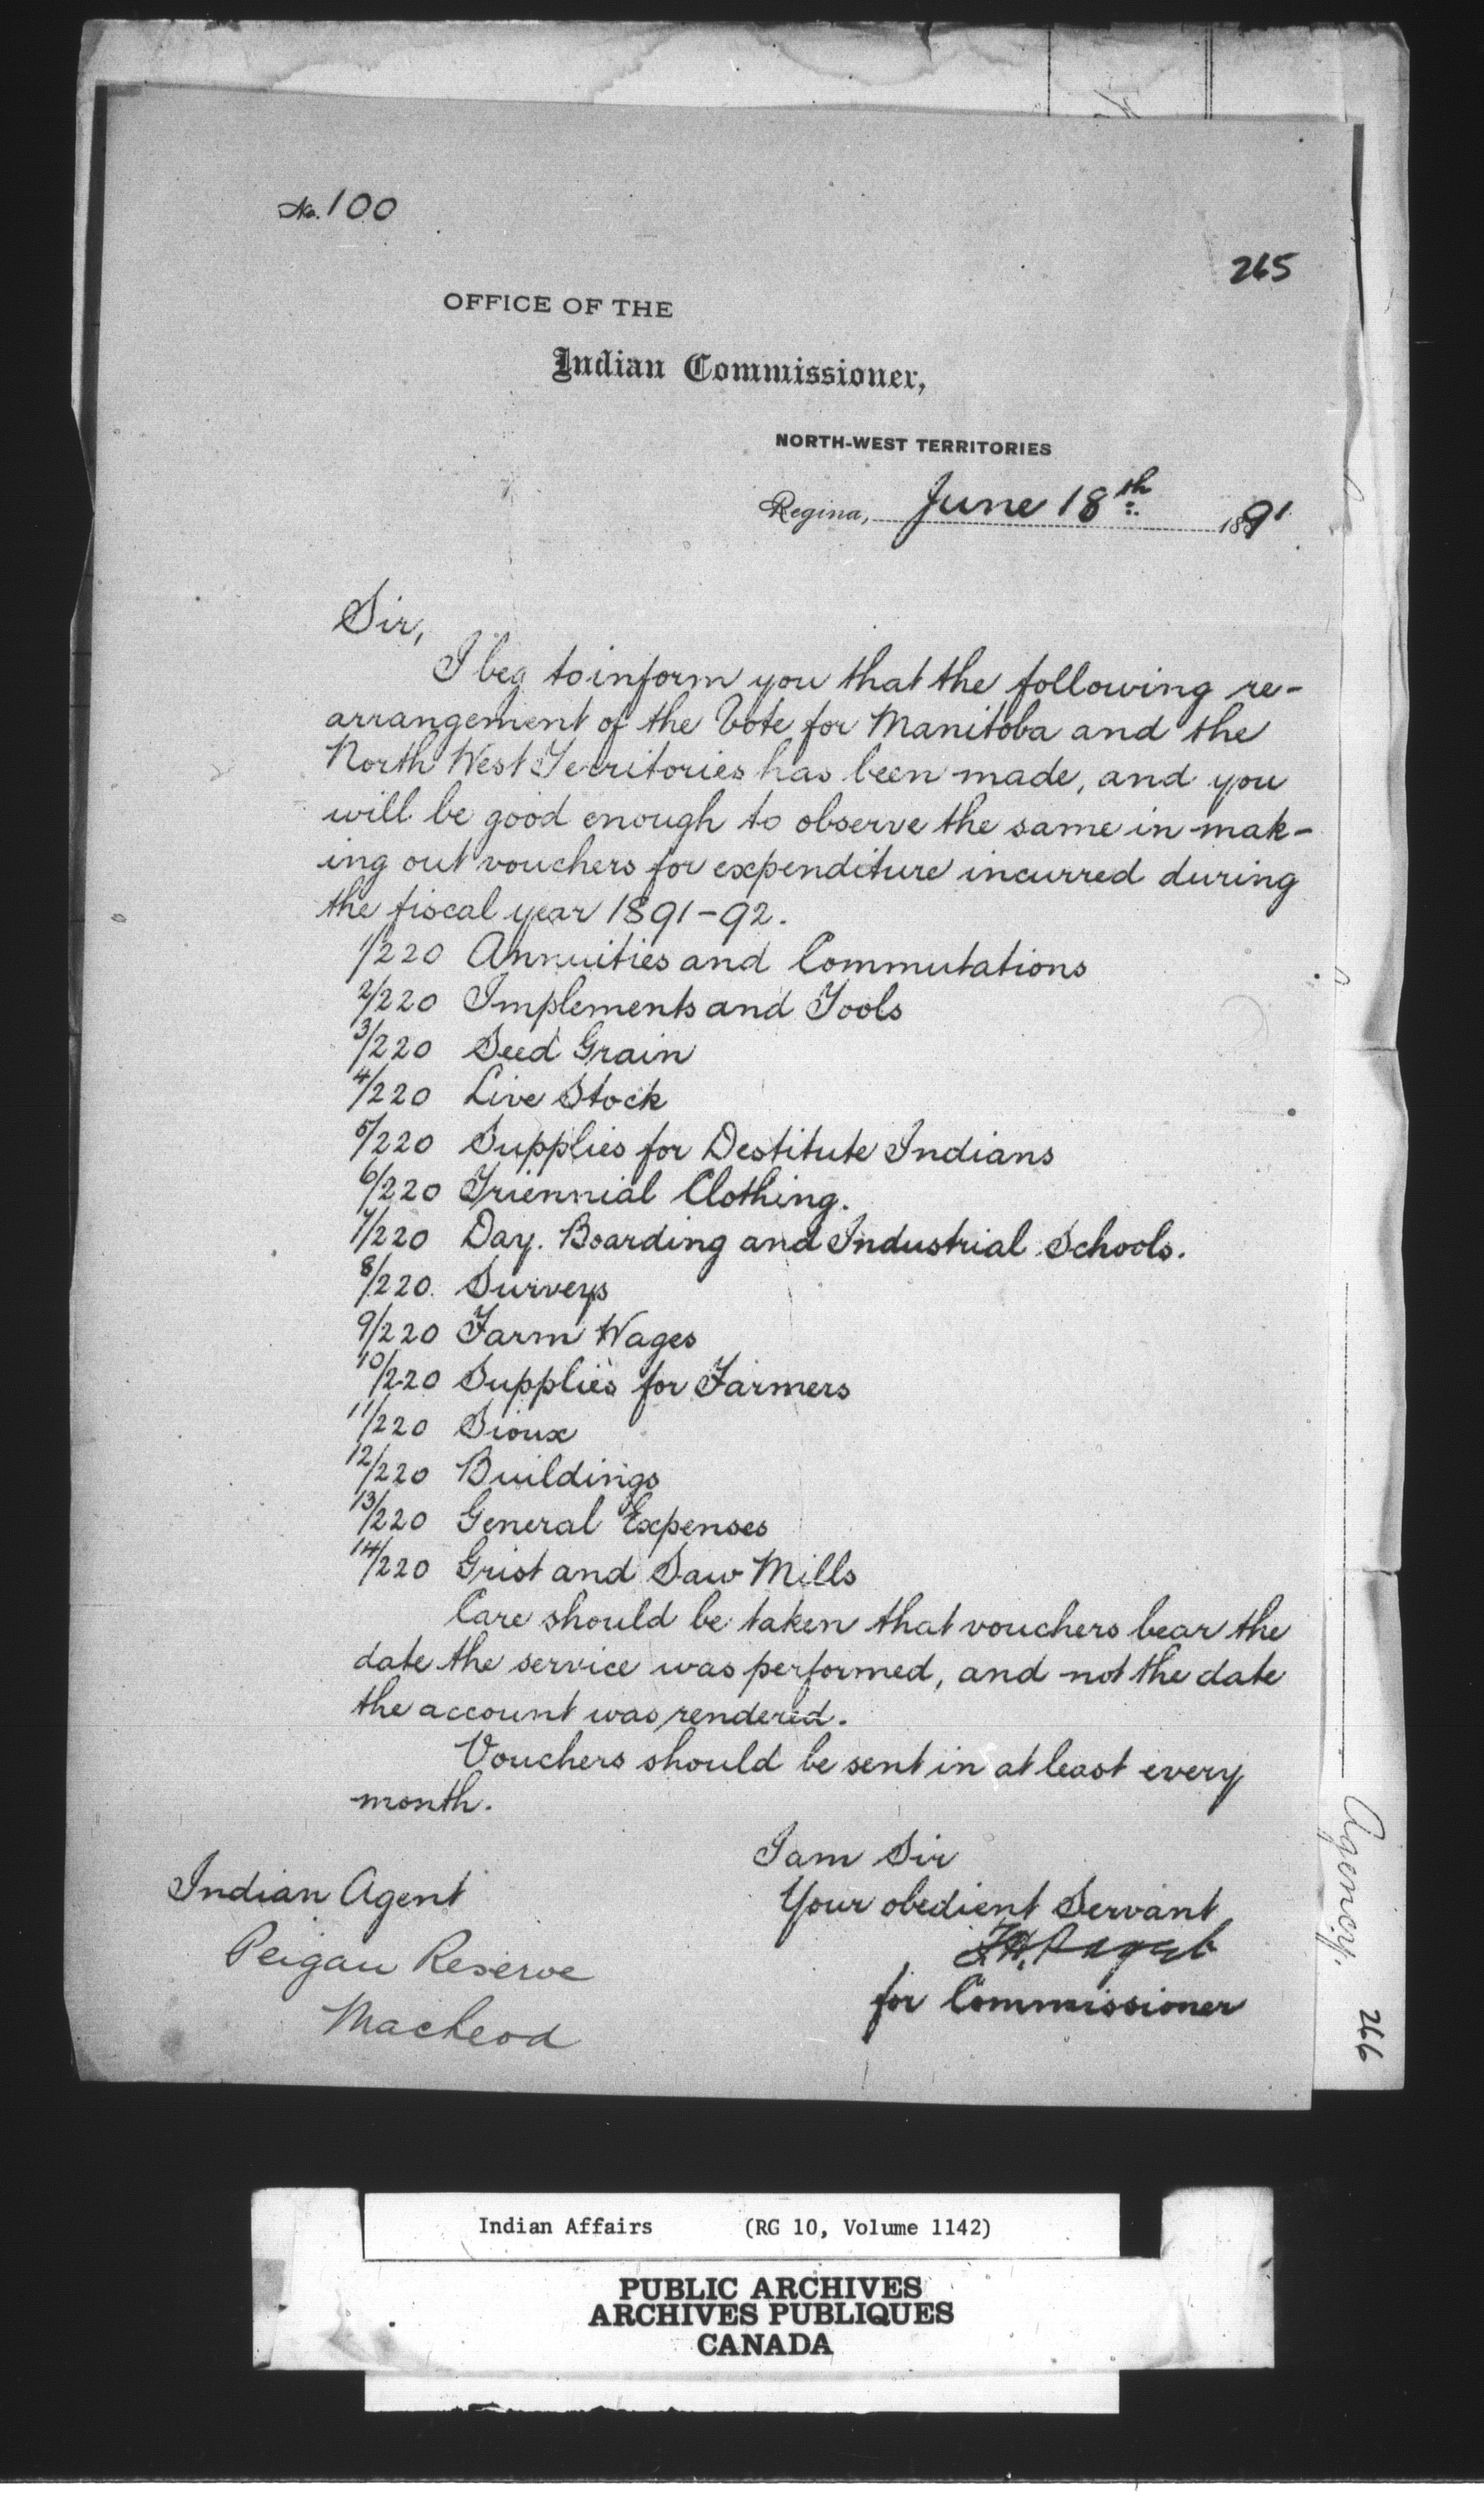 No. 100
265
OFFICE OF THE
Indian Commissioner,
NORTH-WEST TERRITORIES
Regina, June 18th 1891
Sir,
I beg to inform you that the following re-
arrangement of the Vote for Manitoba and the
North West Territories has been made, and you
will be good enough to observe the same in mak-
ing out vouchers for expenditure incurred during
the fiscal year 1891-92.
1/220 Annuities and Commutations
2/220 Implements and Tools
3/220 Seed Grain
4/220 Live Stock
5/220 Supplies for Destitute Indians
6/220 Triennial Clothing.
7/220 Day. Boarding and Industrial Schools.
8/220. Surveys
9/220 Farm Wages
10/220 Supplies for Farmers
11/220 Sioux
12/220 Buildings
13/220 General Expenses
14/220 Grist and Saw Mills
Care should be taken that vouchers bear the
date the service was performed, and not the date
the account was rendered.
Vouchers should be sent in at least every
month.
I am Sir
Your obedient Servant
for Commissioner
Indian Agent
Peigan Reserve
Macleod
Agency.
266
Indian Affairs (RG 10, Volume 1142)
PUBLIC ARCHIVES
ARCHIVES PUBLIQUES
CANADA